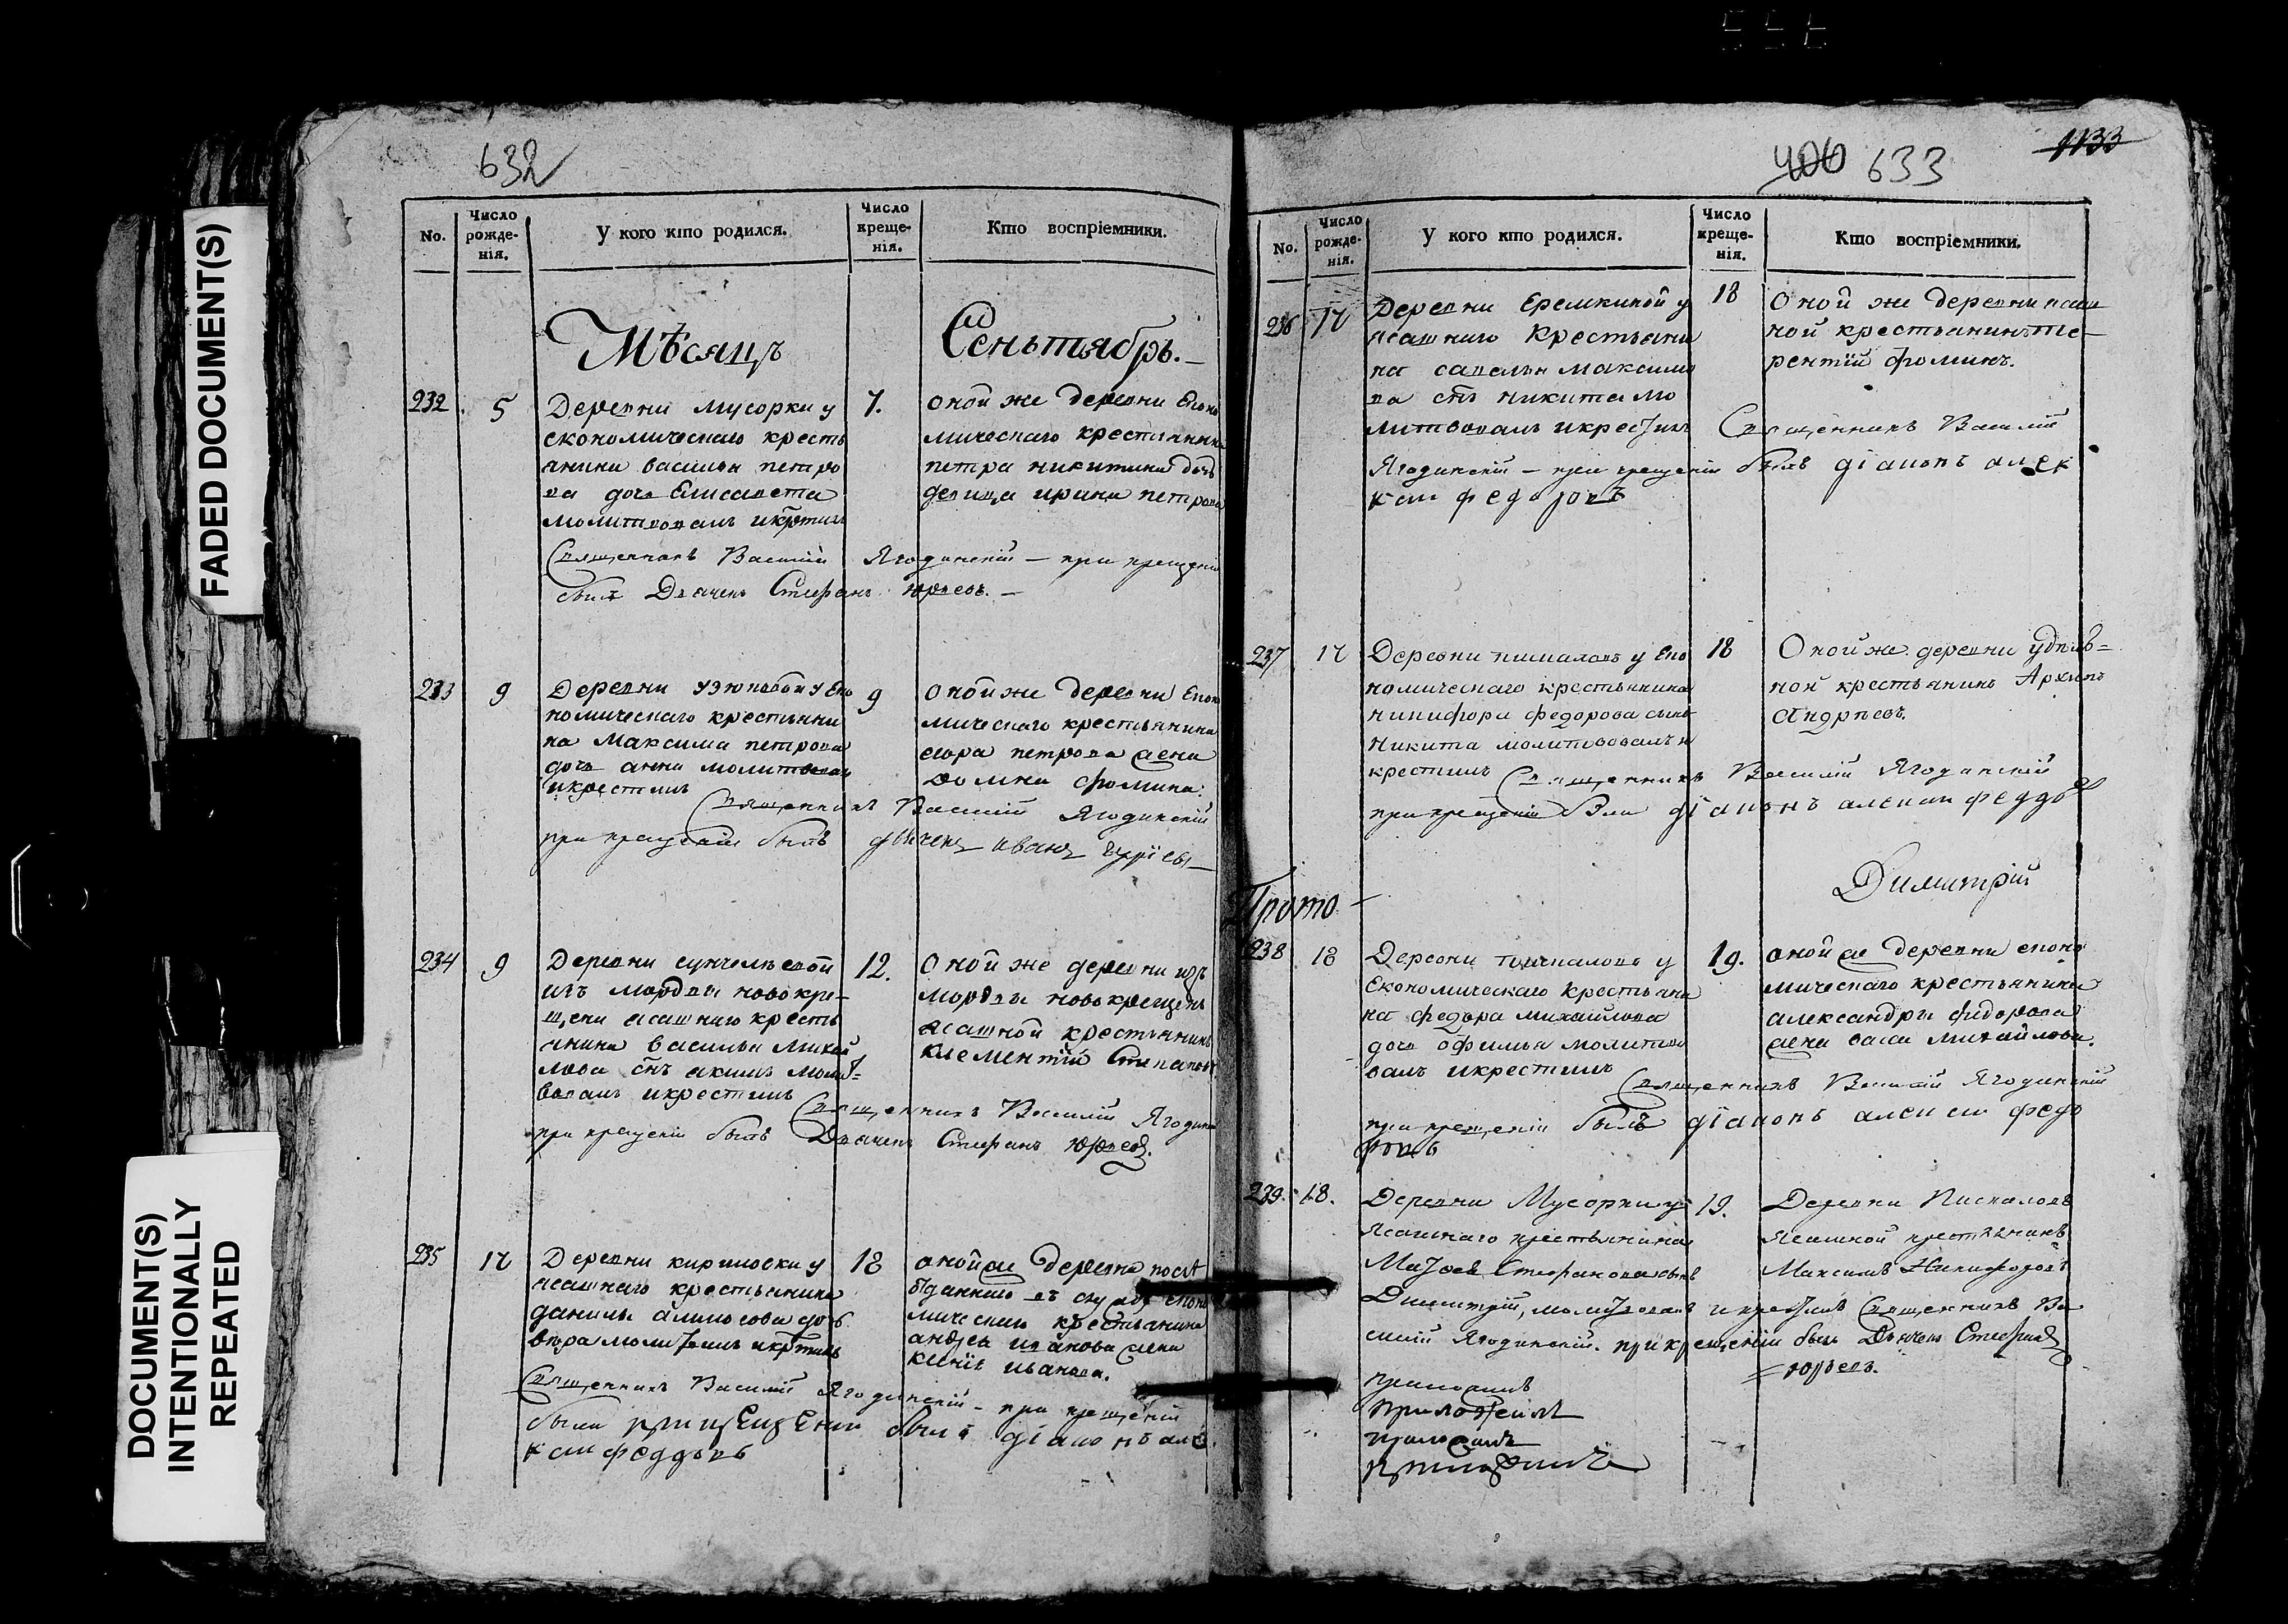 FADED DOCUMENT(S)
DOCUMENT(S)
INTENTIONALLY
REPEATED
632
No.
Число
рожде-
нія.
У кого кто родился.
Число
креще-
нія.
Кто воспріемники.
Мѣсяцъ
Сеньтябрь.
232. 5
Деревни Мусорки у
економическаго кресть
янина василья петро
ва дочь Елисавета
молитвовалъ икртилъ
7.
оной же деревни Еконо
мическаго крестьянина
петра никитина дочь
девица ирина петрова
Священникъ Василій Ягодинскій – при крещеніи
былъ Дьячекъ Стефанъ Юрьевъ. –
233 9
Деревни узюковой у Еко
номическаго крестьяни
на Максима петрова
дочь анна молитвовал
икрестилъ
9
оной же деревни Еконо
мическаго крестьянина
егора петрова жена
Домна фомина.
Священникъ Василій Ягодинскій
при крещеніи былъ дьячекъ иванъ
234 9
Деревни сунчелеевой
изъ мордвы новокре-
щена ясашнаго кресть
янина василья михай
лова снъ акимъ молит-
вовалъ икрестилъ
12.
Оной же деревни изъ
мордвы новокрещенъ
ясашной крестьянинъ
Клементій Степановъ
Священникъ Василій Ягодинс
при крещеніи былъ Дьячекъ Стефанъ Юрьевъ.
235 17
Деревни кириловки у
ясашнаго крестьянина
данилы дочь
вѣра икртилъ
18
оной же деревни
економическаго крестьянина
андрея иванова жена
иванова.
Священникъ Василій Ягодинскій – при крещеніи
были былъ діаконъ але
кси феддоровъ
400 633
1133
No.
Число
рожде-
нія.
У кого кто родился.
Число
креще-
нія.
Кто воспріемники.
236 17
Деревни Еремкиной у
ясашнаго Крестьяни
на савелья максимо
ва снъ никита мо
литвовалъ икрестилъ
18
Оной же деревни ясаш
ной крестьянинъ Те-
рентій фоминъ.
Священникъ Василій
Ягодинскій – при крещеніи былъ діаконъ алек
кси федоровъ
237 17
Деревни пискаловъ у Еко
номическаго крестьянина
никифора федорова сынъ
Никита молитвовалъ и
крестилъ
18
Оной же деревни удѣль-
ной крестьянинъ Архипъ
Андрѣевъ.
Священникъ Василій Ягодинскій
при крещеніи былъ діаконъ алекси феддо
Прото-
Димитрій
238 18
Деревни пискаловъ у
Економическаго крестьяни
на федора михайлова
дочь офимья молитво
валъ икрестилъ
19.
оной же деревни еконо
мическаго крестьянина
александры фидорова
жена васа михайлова.
Священникъ Василій Ягодинскій
при крещеніи былъ діаконъ алекси федо
ровъ
239. 18.
Деревни Мусорки у
Ясашнаго крестьянина
Матвея Стефанова сынъ
Димитрій, молитвовалъ и крестилъ Священникъ Ва
силій Ягодинскій. при крещеніи былъ Дьячекъ Стефанъ
Юрьевъ.
19.
Деревни Пискаловъ
Ясашной крестьянинъ
Максимъ Никифоровъ